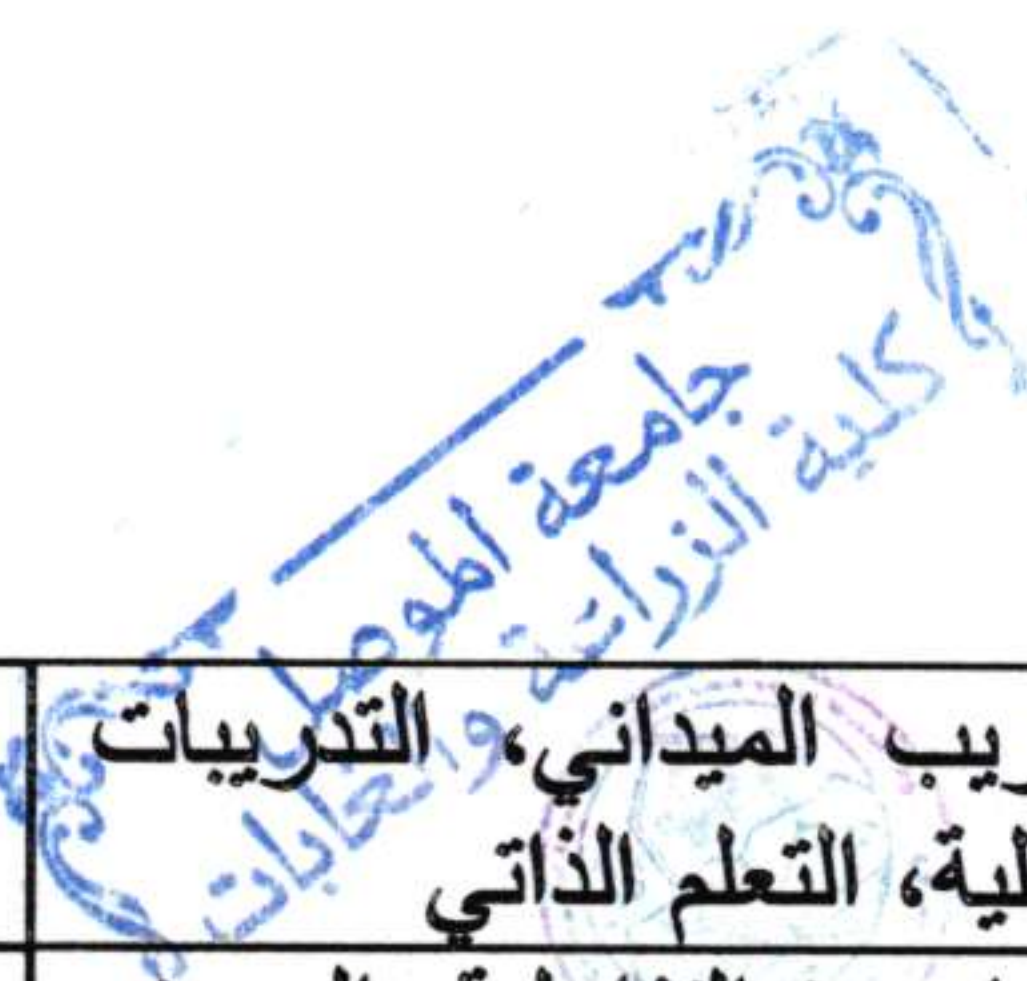 جامعة الموصل
كلية الزراعة والغابات
ريب الميداني، التدريبات
لية، التعلم الذاتي